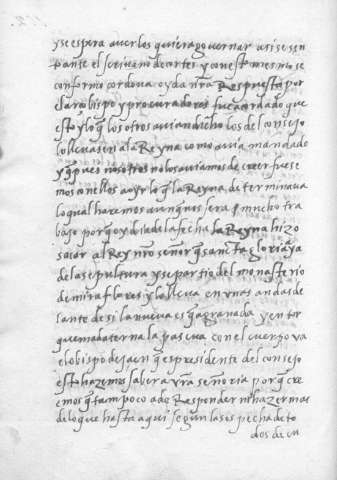 y se espera aver los quiera governar asi se sen
pan se el scrivano de cortes y con esto mesmo se
conformo cordova oyda nra Respuesta por
el arçobispo y procuradores fue acordado que
esto y lo q los otros avian dicho los del consejo
lo llevasen a la Reyna como avia mandado
y q pues nosotros no los aviamos de creer fuese
mos con ellos a oyr lo q la Reyna determinava
lo qual haremos aunque sera mucho tra
bajo porq oy dia de la fecha la Reyna hizo
sacar al Rey nro señor q sancta gloria aya
de la sepultura y se partio del monasterio
de miraflores y lo lleva en unas andas de
lante de si la nueva es q a granada y en tor
quemada terna la pascua con el cuerpo va
el obispo de jaen q es presidente del consejo
esto hazemos saber a vra señoria porq cre
emos q tampoco a de Responder ni hazer mas
de lo que hasta aqui segun la sospecha de to
dos de en